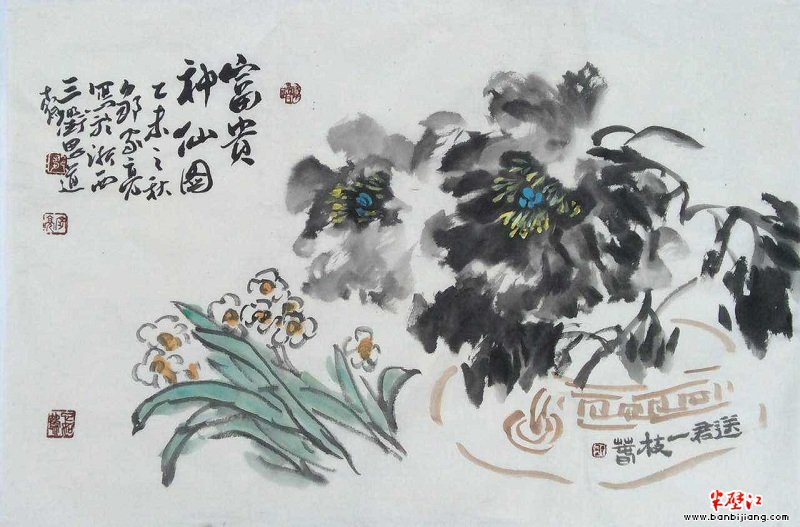 富贵
神仙图
乙未之秋
邹家亮
写於浙西
三衢思道
送君一枝春
半壁江
www.banbijiang.com